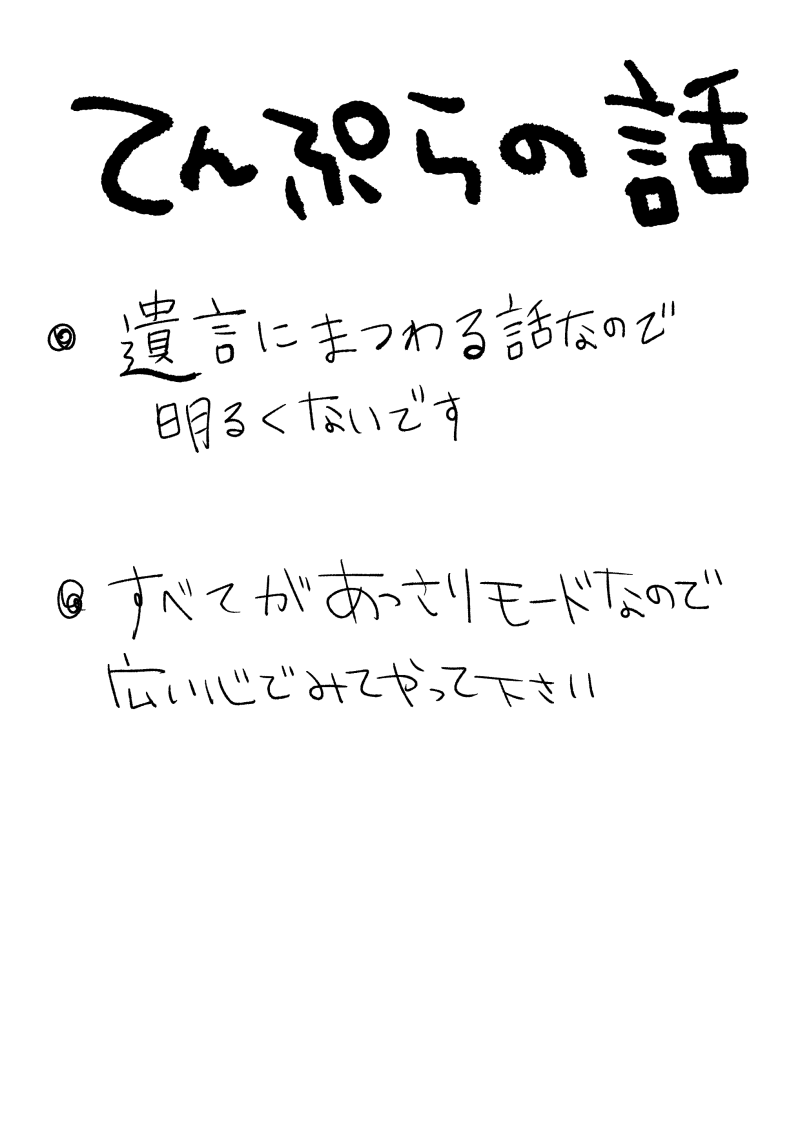 てんぷらの話
遺言にまつわる話なので
明るくないです
すべてがあっさりモードなので
広い心でみてやって下さい